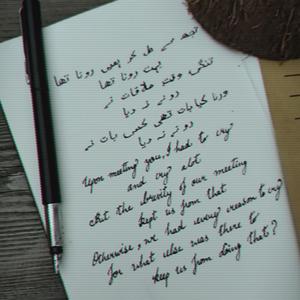 تجھ سے مل کر ہمیں رونا تھا
بہت رونا تھا
تنگی وقت ملاقات نے
رونے نہ دیا
ورنا کیا بات تھی کس بات نے
رونے نہ دیا
Upon meeting you, I had to cry
and cry alot
But the brevity of our meeting
kept us from that
Otherwise, we had every reason to cry
for what else was there to
keep us from doing that?